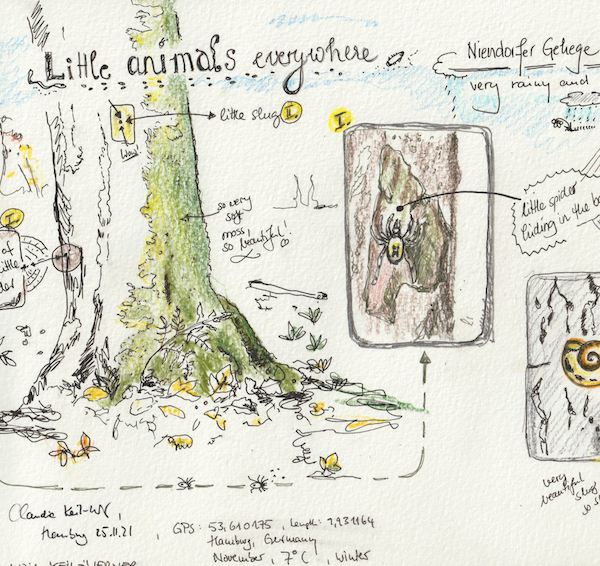 Little animals everywhere
Niendorfer Gehege
very rainy and
little slug II.
I.
so very
soft
moss,
so beautiful!
little spider
hiding in the
I
of
little
very
beautiful
slug
so
Hamburg 25.11.21
GPS: 53,610175, Length: 9,931164
Hamburg, Germany
November, 7°C, winter